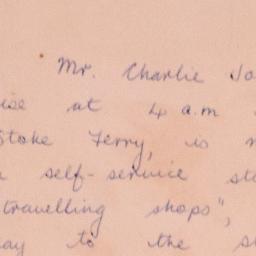 Mr. Charlie
at 4 a.m
Stoke Ferry, is
self-service
travelling shops",
to the